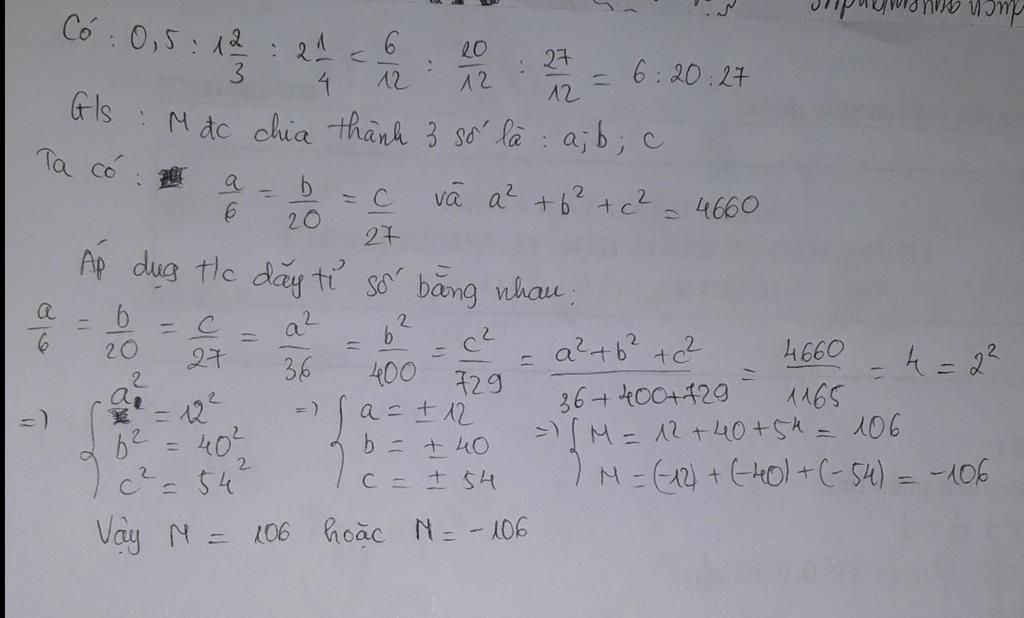 Có : 0,5 : 1 2/3 : 2 1/4 = 6/12 : 20/12 : 27/12 = 6 : 20 : 27
G/s : M đc chia thành 3 số là : a; b; c
Ta có : a/6 = b/20 = c/27 và a² + b² + c² = 4660
Áp dụg t/c dãy tỉ số bằng nhau:
a/6 = b/20 = c/27 = a²/36 = b²/400 = c²/729 = (a² + b² + c²)/(36 + 400 + 729) = 4660/1165 = 4 = 2²
=> { a² = 12² => { a = ± 12 => { M = 12 + 40 + 54 = 106
b² = 40² b = ± 40 M = (-12) + (-40) + (-54) = -106
c² = 54² c = ± 54
Vậy M = 106 hoặc M = -106